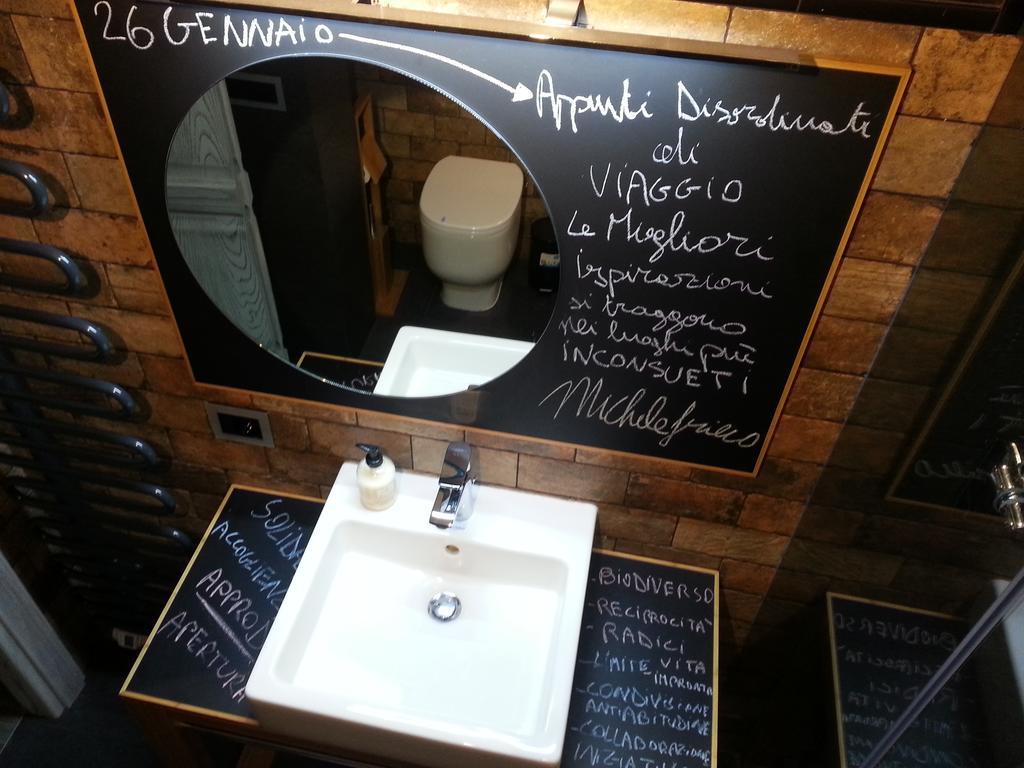 26 GENNAIO
Appunti Disordinati
di
VIAGGIO
Le Migliori
Ispirazioni
si traggono
nei luoghi più
INCONSUETI
SOLIDA
ACCOGLIENZ
APPRO
APERTURA
-BIODIVERSO
-RECIPROCITA'
-RADICI
-LIMITE VITA
-IMPRONTA
-CONDIVISIONE
ANTIABITUDINE
-COLLABORAZIONE
INIZIATIV